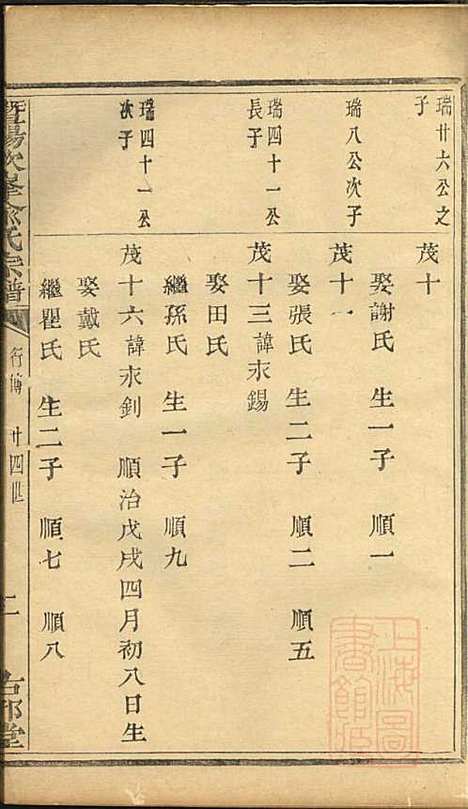 瑞廿六公之
子
茂十
娶謝氏 生一子 順一
瑞八公次子
茂十一
娶張氏 生二子 順二 順五
瑞四十一公
長子
茂十三諱永錫
娶田氏
繼孫氏 生一子 順九
瑞四十一公
次子
茂十六諱永釗 順治戊戌四月初八日生
娶戴氏
繼瞿氏 生二子 順七 順八
暨陽次峯俞氏宗譜
行傳 廿四世
二
上海圖書館藏